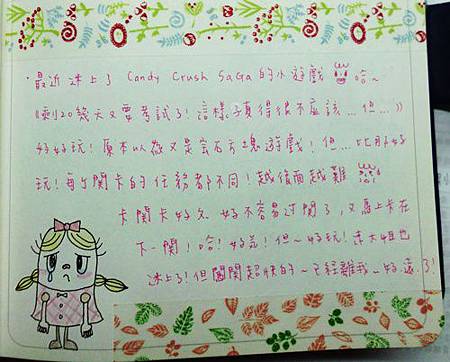 ·最近迷上了 Candy Crush Saga的小遊戲 哈~
((剩20幾天又要考試了!這樣子真得很不應該...但...))
好好玩!原本以為又是寶石方塊遊戲!但~比月好
玩!每個關卡的任務都不同!越後面越難
卡關卡好久 好不容易過關了,又馬上卡在
下一關!哈!好羞!但~好玩!連大姐也
迷上了!但闖關超快的~已經離我~好遠了!